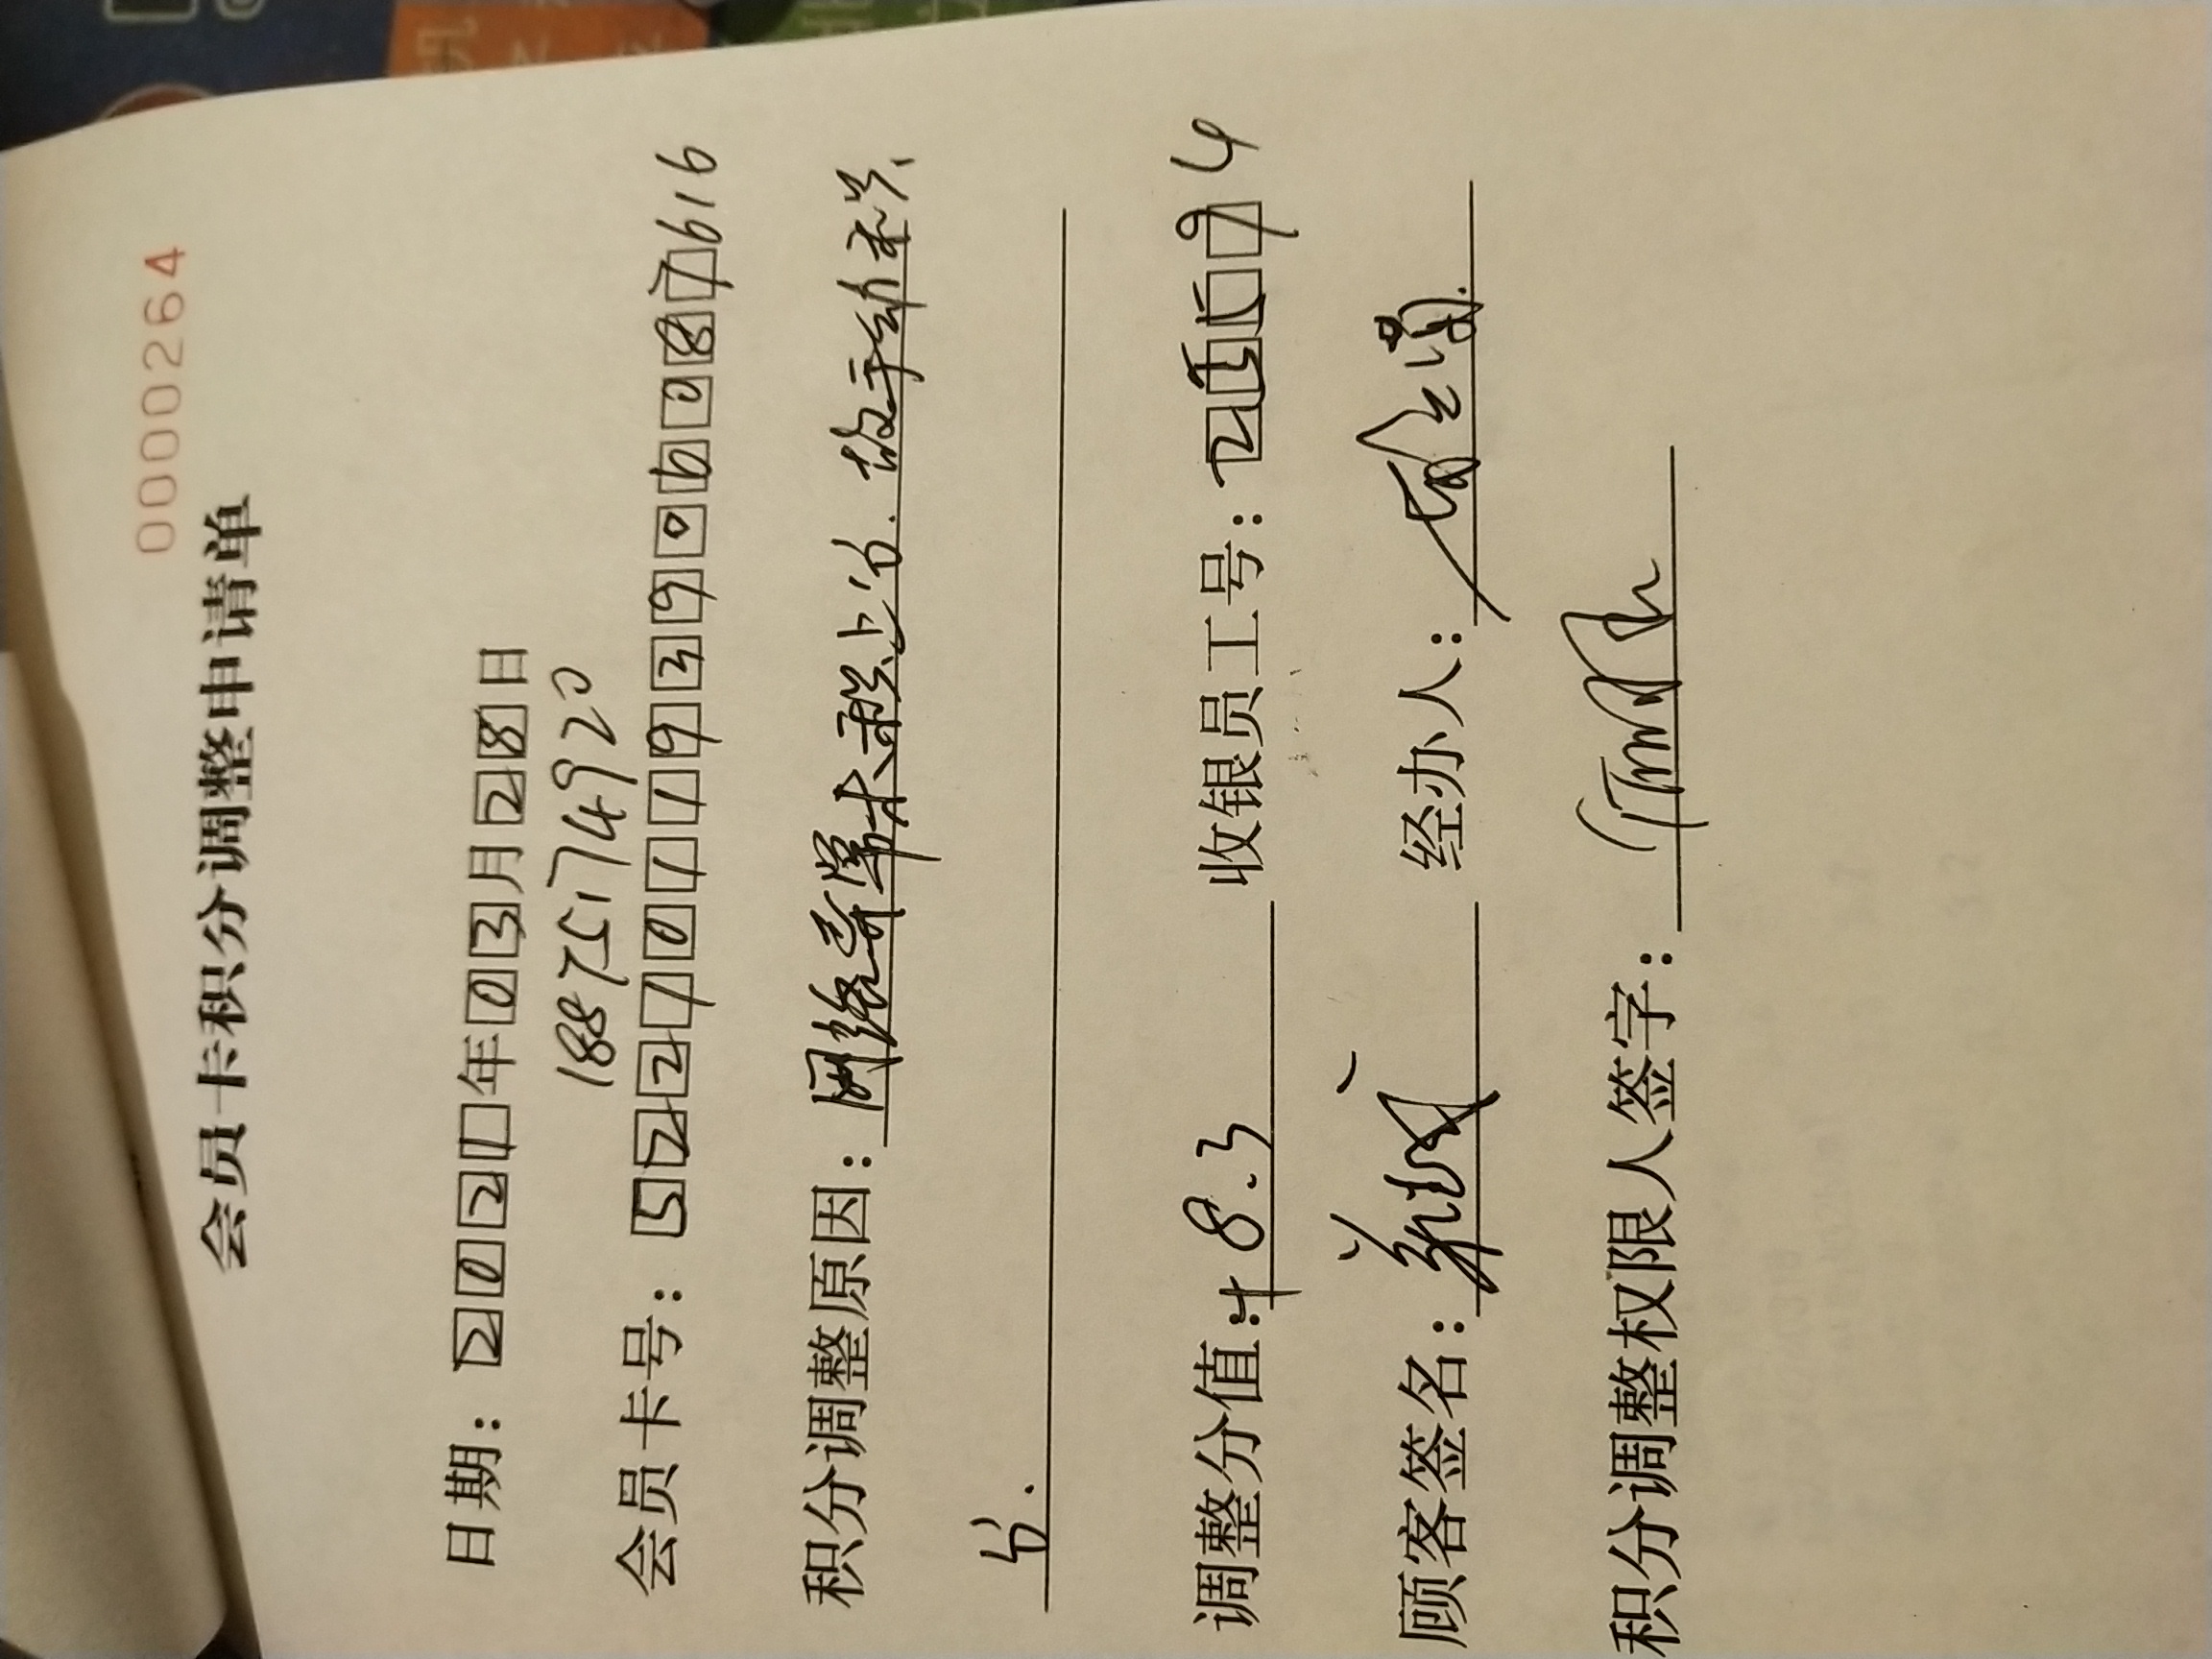 0000264
会员卡积分调整申请单
日期：2021年03月28日
18875174920
会员卡号：5227011939060087616
积分调整原因：网络异常未积上分.故手动积
分.
调整分值：+8.3 收银员工号：
顾客签名： 经办人：
积分调整权限人签字：